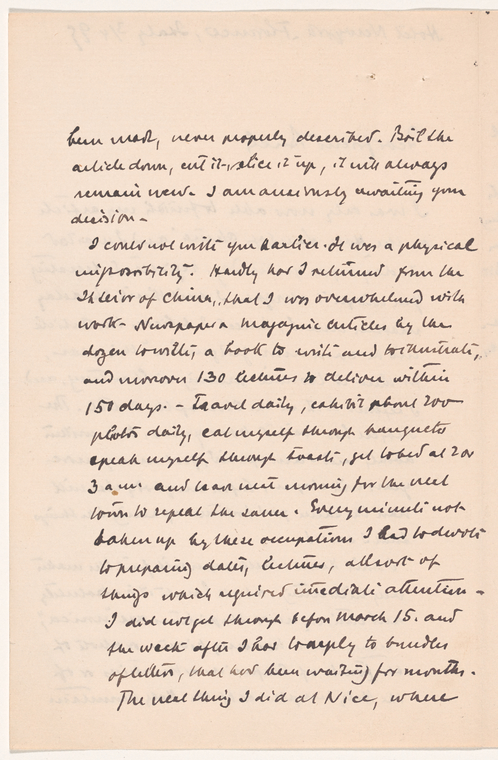 been made, never properly described. Boil the
article down, cut it, slice it up, it will always
remain new. I am anxiously awaiting your
decision -
I could not write you earlier. It was a physical
impossibility. Hardly had I returned from the
Interior of China, that I was overwhelmed with
work - Newspaper & magazine articles by the
dozen to write, a book to write and to illustrate,
and moreover 130 lectures to deliver within
150 days. - Travel daily, exhibit about 200
photos daily, eat myself through banquets
speak myself through toasts, get to bed at 2 or
3 a.m. and leave next morning for the next
town to repeat the same. Every minute not
taken up by these occupations I had to devote
to preparing dates, lectures, all sort of
things which required imediate attention -
I did not get through before March 15. and
the week after I had to reply to bundles
of letters, that had been waiting for months.
The next thing I did at Nice, where